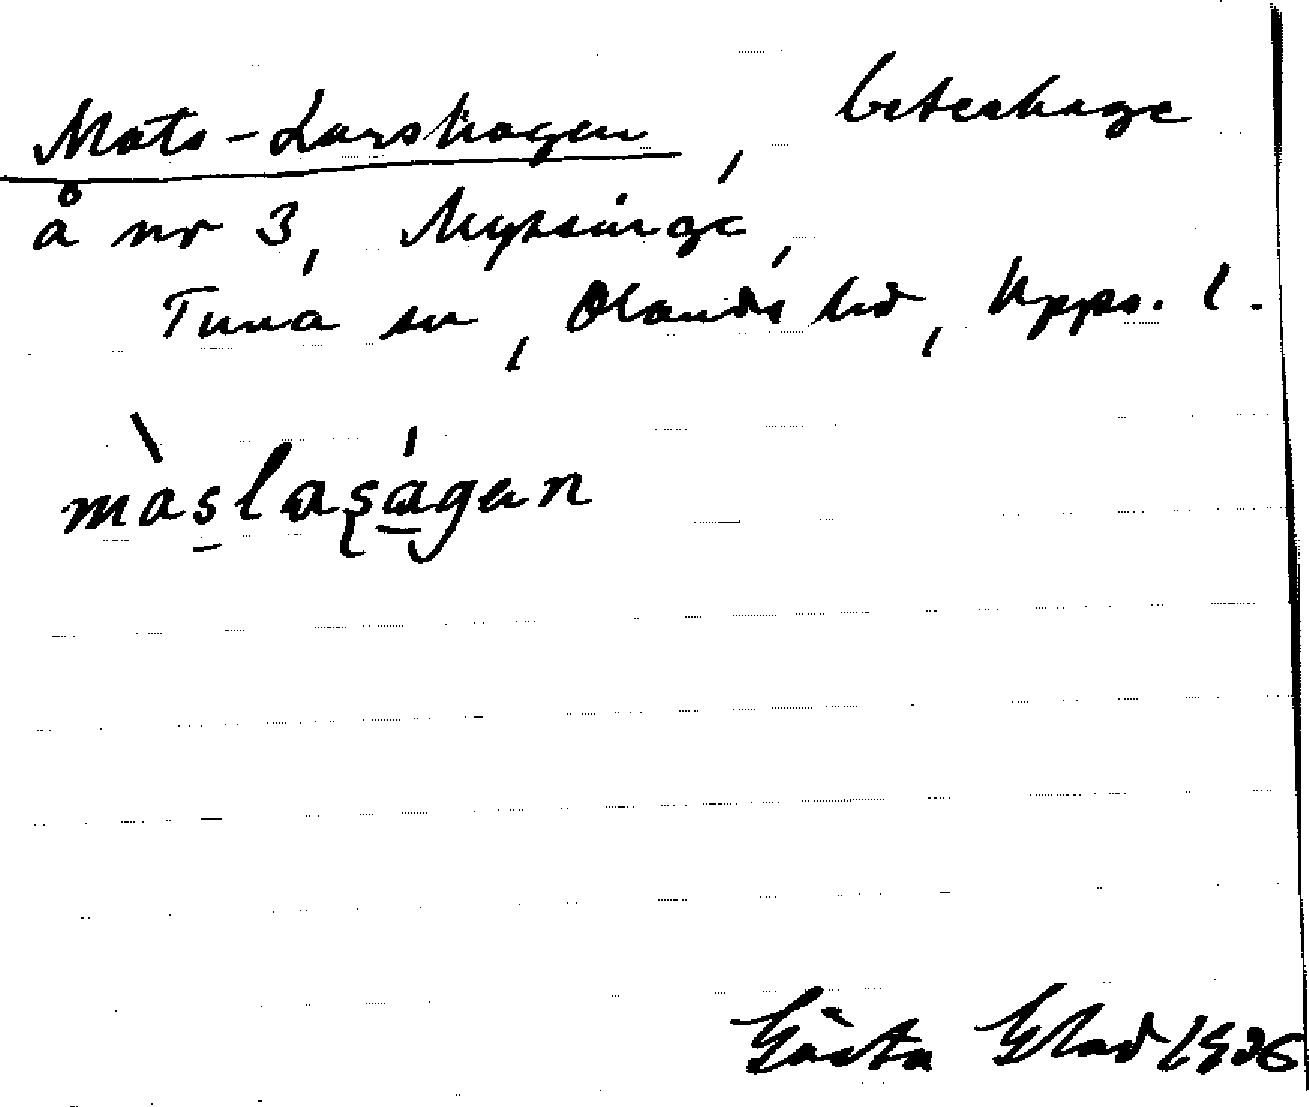 Mats-Larshagen, beteshage
å nr 3, Mysinge,
Tuna sn, Olands hd, Upps. l.
màslaṣágan
Gösta Elad 1936